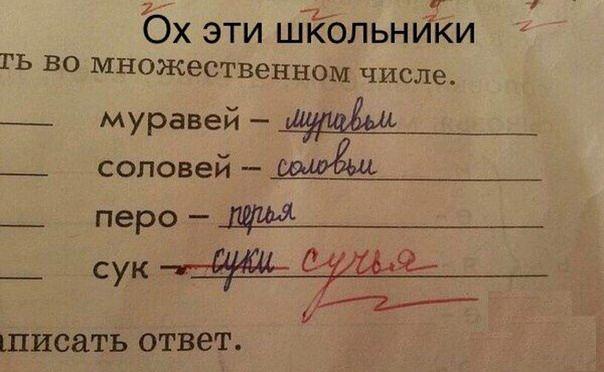 Ох эти школьники
ть во множественном числе.
муравей – муравьи
соловей – соловьи
перо – перья
сук – суки сучья
писать ответ.